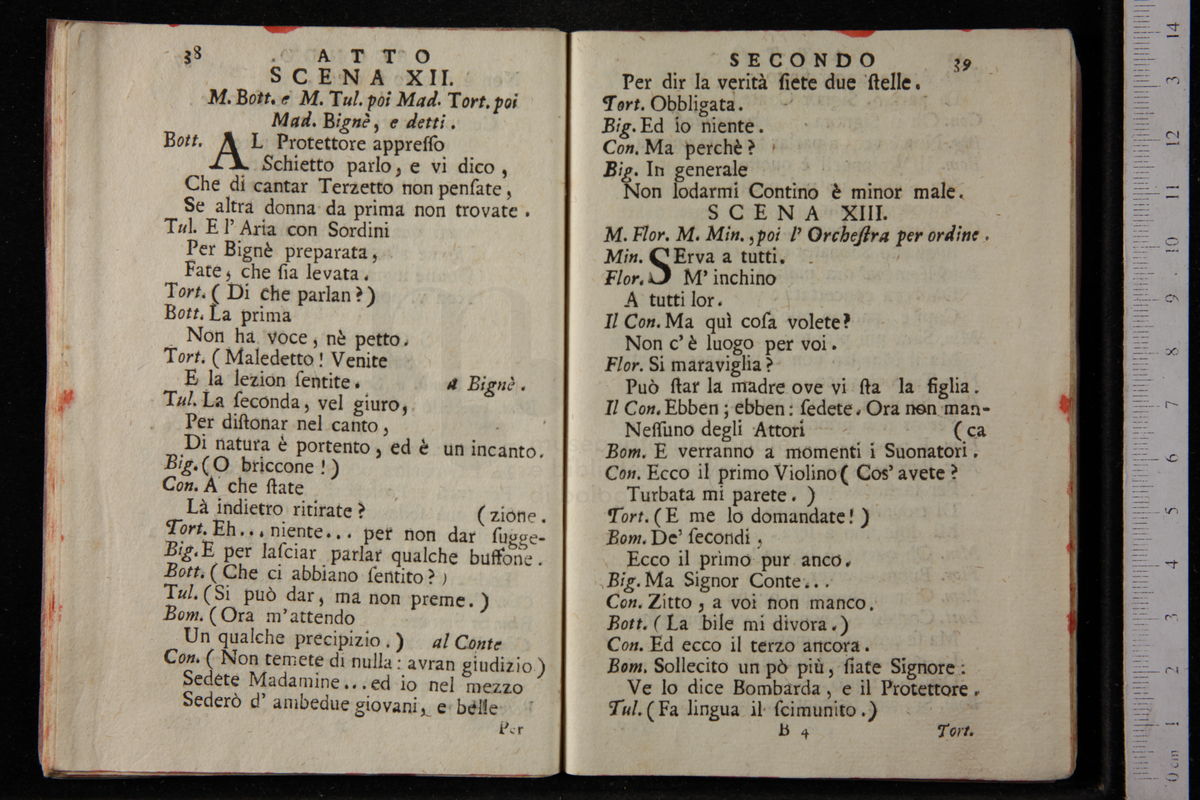 38 ATTO
SCENA XII.
M. Bott. e M. Tul. poi Mad. Tort. poi
Mad. Bignè, e detti.
Bott. AL Protettore appreſſo
Schietto parlo, e vi dico,
Che di cantar Terzetto non penſate,
Se altra donna da prima non trovate.
Tul. E l' Aria con Sordini
Per Bignè preparata,
Fate, che ſia levata.
Tort. ( Di che parlan? )
Bott. La prima
Non ha voce, nè petto.
Tort. ( Maledetto! Venite
E la lezion ſentite. a Bignè.
Tul. La ſeconda, vel giuro,
Per diſtonar nel canto,
Di natura è portento, ed è un incanto.
Big. ( O briccone! )
Con. A che ſtate
Là indietro ritirate? (zione.
Tort. Eh... niente... per non dar ſugge-
Big. E per laſciar parlar qualche buffone.
Bott. ( Che ci abbiano ſentito? )
Tul. ( Si può dar, ma non preme. )
Bom. ( Ora m'attendo
Un qualche precipizio. ) al Conte
Con. ( Non temete di nulla: avran giudizio )
Sedete Madamine... ed io nel mezzo
Sederò d' ambedue giovani, e belle
Per
SECONDO 39
Per dir la verità ſiete due ſtelle.
Tort. Obbligata.
Big. Ed io niente.
Con. Ma perchè?
Big. In generale
Non lodarmi Contino è minor male.
SCENA XIII.
M. Flor. M. Min., poi l' Orcheſtra per ordine.
Min. SErva a tutti.
Flor. M' inchino
A tutti lor.
Il Con. Ma quì coſa volete?
Non c' è luogo per voi.
Flor. Si maraviglia?
Può ſtar la madre ove vi ſta la figlia.
Il Con. Ebben; ebben: ſedete. Ora non man-
Neſſuno degli Attori (ca
Bom. E verranno a momenti i Suonatori.
Con. Ecco il primo Violino ( Cos' avete?
Turbata mi parete. )
Tort. ( E me lo domandate! )
Bom. De' ſecondi,
Ecco il primo pur anco.
Big. Ma Signor Conte...
Con. Zitto, a voi non manco.
Bott. ( La bile mi divora. )
Con. Ed ecco il terzo ancora.
Bom. Sollecito un pò più, ſiate Signore:
Ve lo dice Bombarda, e il Protettore.
Tul. ( Fa lingua il ſcimunito. )
B 4 Tort.
0 cm 1 2 3 4 5 6 7 8 9 10 11 12 13 14